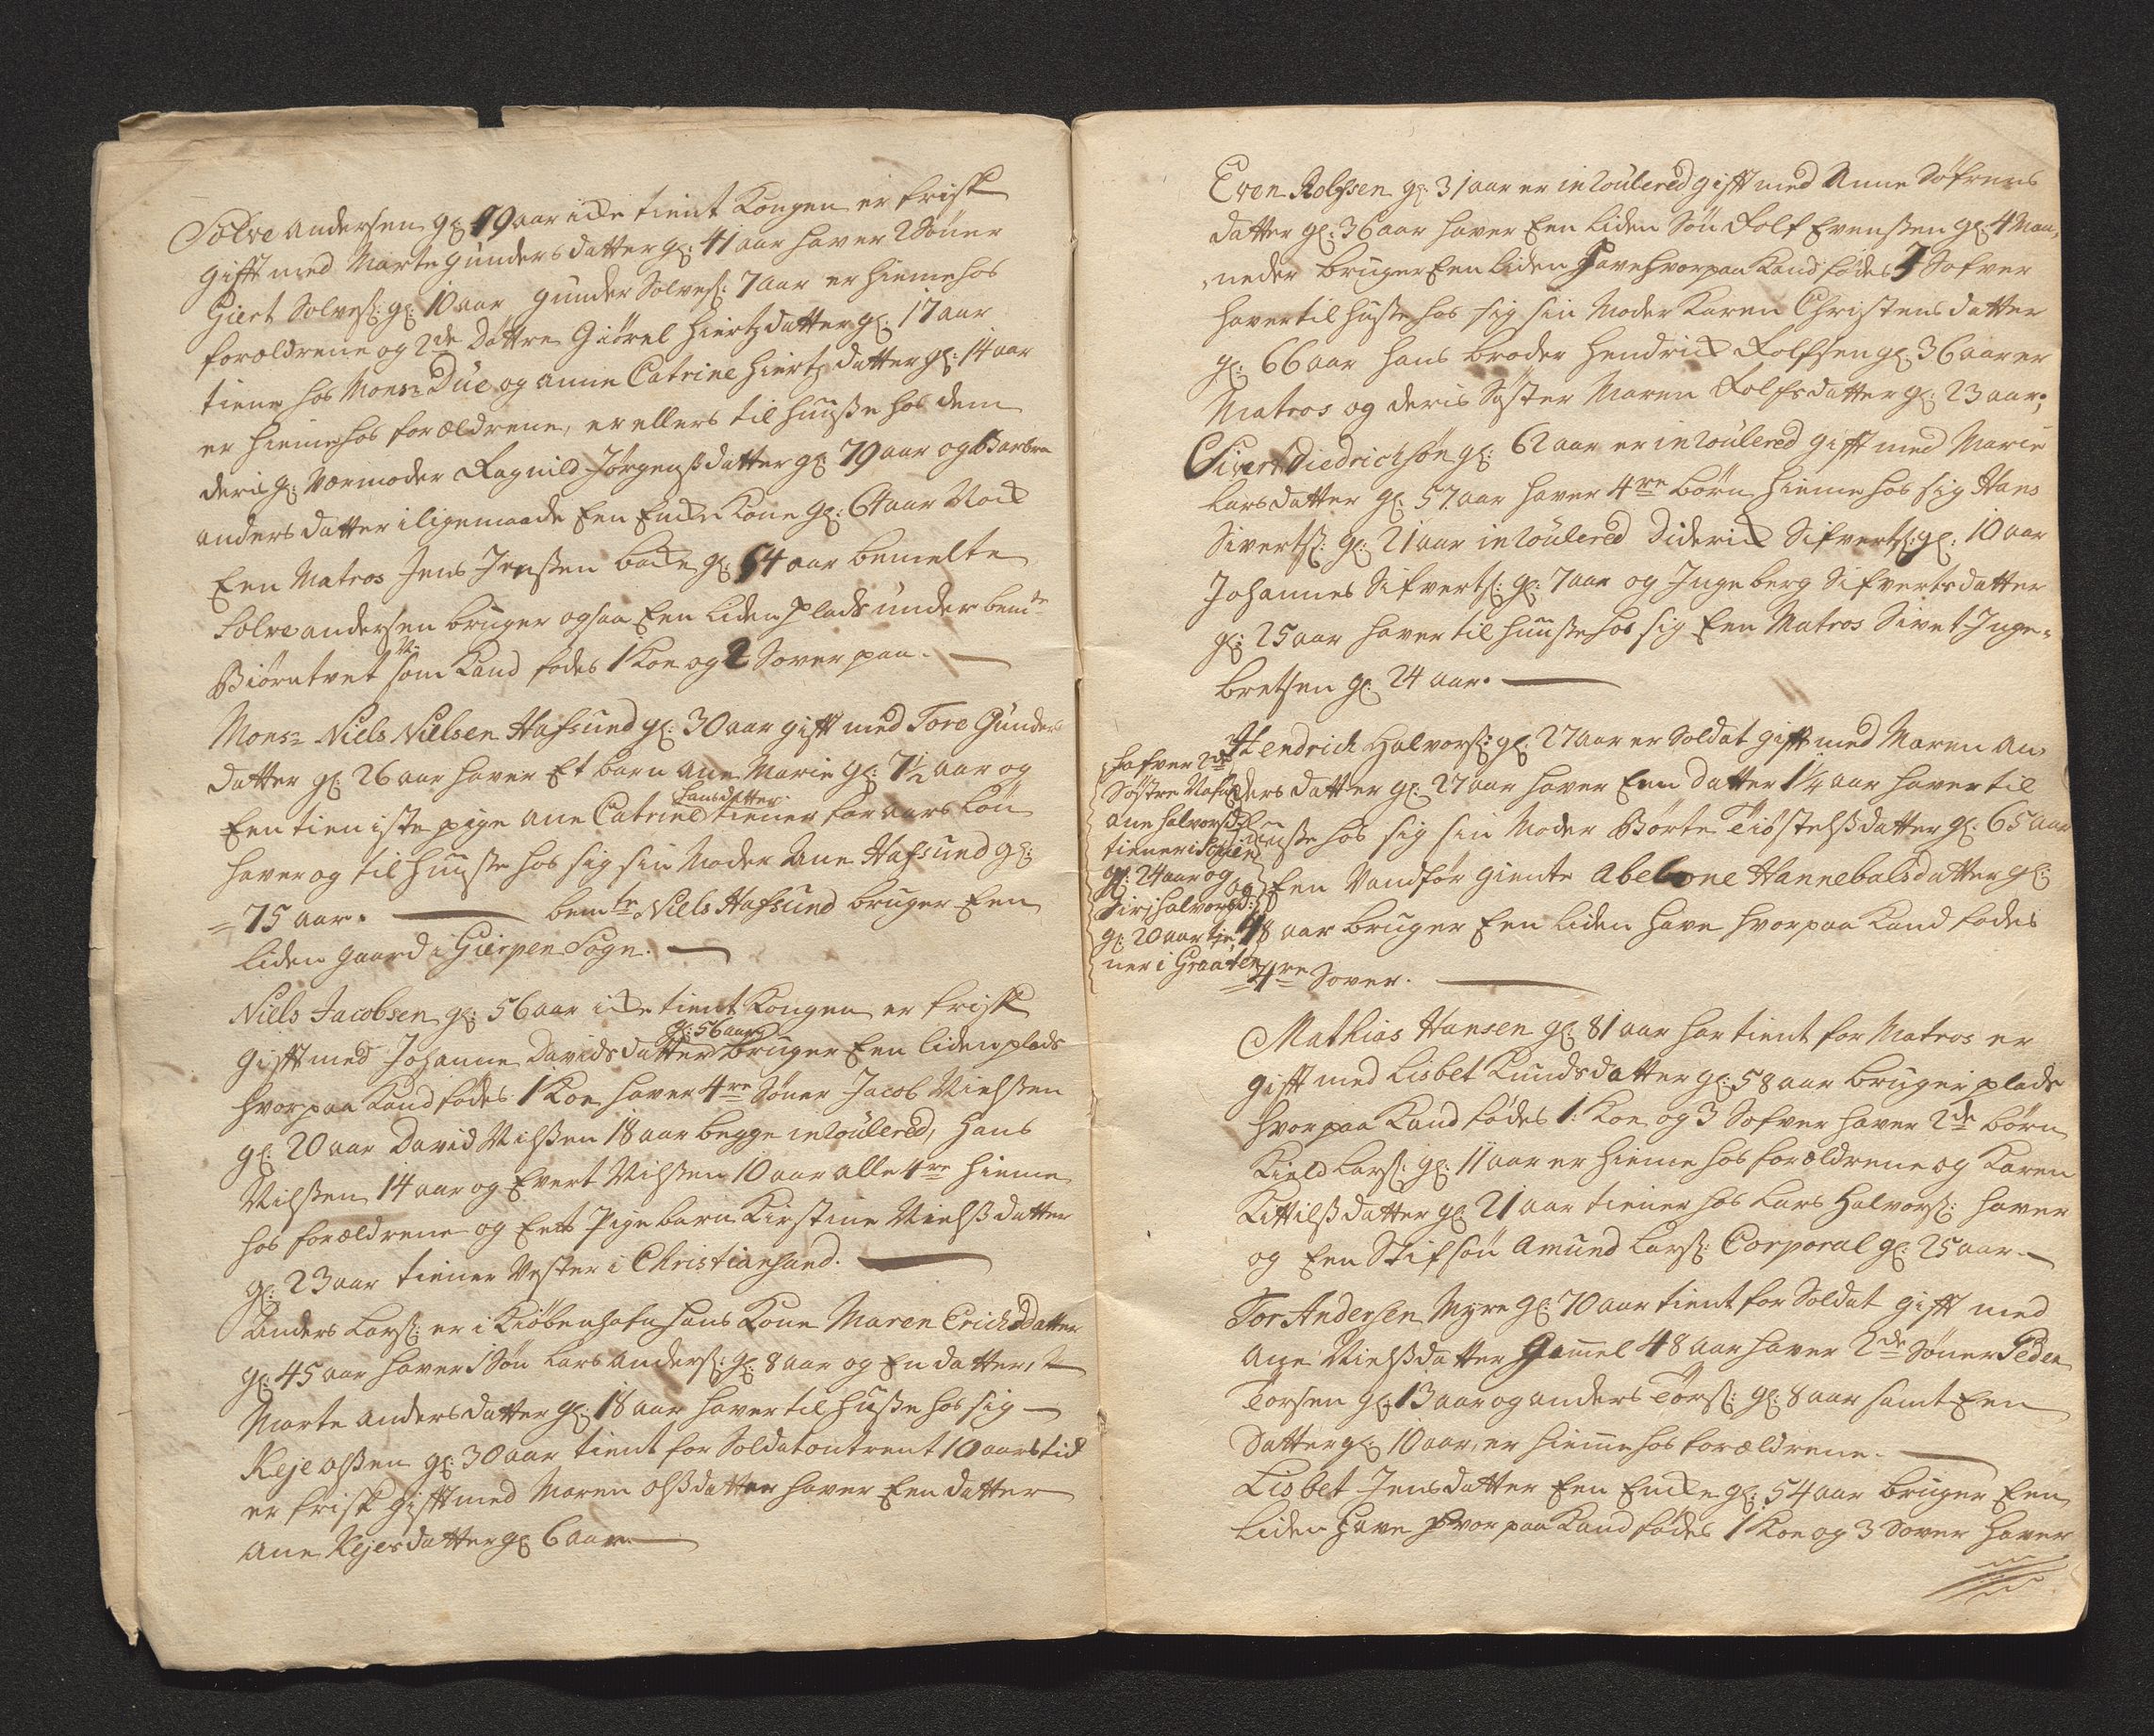 Solve Andersen gl: 49 aar icke tient Kongen er frisk
gifft med Marte Gundersdatter gl: 41 aar haver 2 Sönner
Giert Solvess: gl: 10 aar Gunder Solvess: 7 aar er hieme hos
forældrene og 2de Döttre Giörel Hiertzdatter gl: 17 aar
tiene hos Monsr Due og Anne Catrine Hiertzdatter gl: 14 aar
er hieme hos forældrene, er ellers til huusse hos dem
deris gl: Værmoder Ragnild Jörgenssdatter gl: 79 aar og Barbra
andersdatter iligemaade Een Encke Kone gl: 64 aar Nock
Een Matros Jens Jenssen backe gl: 54 aar bemelte
Solve andersen bruger ogsaa Een liden plads under bemte
Biörntvet som Kand födes 1 Koe og 2 Sover paa.
Monsr Niels Nielsen Hafsund gl: 30 aar gifft med Tore Gunders
datter gl: 26 aar haver Et barn Ane Marie gl: 7½ aar og
Een tieniste pige Ane Catrine Hansdatter tiener for aars Lön
haver og til huusse hos sig sin Moder Ane Hafsund gl:
75 aar. bemte Niels Hafsund bruger Een
liden gaard i Gierpen Sogn.
Niels Jacobsen gl: 56 aar icke tient Kongen er frisk
gifft med Johanne Davidsdatter gl: 56 aar bruger Een liden plads
hvorpaa Kand födes 1 Koe haver 4re Sönner Jacob Nielssen
gl: 20 aar David Nilssen 18 aar begge inroulered, Hans
Nilssen 14 aar og Evert Nilssen 10 aar alle 4re hieme
hos forældrene og Eet Pigebarn Kirstine Nielssdatter
gl: 23 aar tiener Vester i Christiansand.
Anders Larss: er i Kiöbenhafn hans Kone Maren Erichsdatter
gl: 45 aar haver 1 Sön Lars Anderss: gl: 8 aar og En datter,
Marte Andersdatter gl: 18 aar haver til husse hos sig
Reje olssen gl: 30 aar tient for Soldat ontrent 10 aars tid
er frisk gifft med Maren olssdatter haver Een datter
Ane Rejersdatter gl: 6 aar
Even Rolfssen gl: 31 aar er inroulered gifft med Anne Söfrens
datter gl: 36 aar haver Een liden Sön Rolf Evenssen gl: 4 Maa,
neder bruger Een liden Have hvorpaa Kand födes 3 Sofver
haver til husse hos sig sin Moder Karen Christensdatter
gl: 66 aar hans broder Hendrick Rolfsen gl: 36 aar er
Matros og deris Söster Maren Rolfsdatter gl: 23 aar.
Sivert Diedrichsön gl: 62 aar er inroulered gifft med Marie
Larsdatter gl: 57 aar haver 4re börn hieme hos sig Hans
Sivertss: gl: 21 aar inroulered Diderick Sifvertss: gl: 10 aar
Johannes Sifvertss: gl: 7 aar og Ingeberg Sifvertsdatter
gl: 25 aar haver til huusse hos sig Een Matros Sivet Inge-
bretsen gl: 24 aar.
Hendrich Halvorss: gl: 27 aar er Soldat gifft med Maren An
dersdatter gl: 27 aar haver Een datter 1¼ aar haver til
husse hos sig sin Moder Börte Tiöstelssdatter gl: 65 aar
og Een Vandför giente Abelone Hannebalsdatter gl:
48 aar bruger Een liden have hvorpaa Kand födes
4re Sover.
hafver 2de
Söstre
Ane Halvorsd:
tiener i Schien
gl: 24 aar og
Siri Halvorsd:
gl: 20 aar tje-
ner i Graaten
Mathias Hansen gl: 81 aar har tient for Matros er
gifft med Lisbet Knudsdatter gl: 58 aar bruger plads
hvorpaa Kand födes 1: Koe og 3 Sofver haver 2de börn
Kield Larss: gl: 11 aar er hieme hos forældrene og Karen
Kittilssdatter gl: 21 aar tiener hos Lars Halvorss: haver
og Een Stifsön Amund Larss: Corporal gl: 25 aar
Tor Andersen Myre gl: 70 aar tient for Soldat gifft med
Ane Nielssdatter Gammel 48 aar haver 2de Sönner Peder
Torsen gl: 13 aar og anders Torss: gl: 8 aar samt Een
Datter gl: 10 aar, er hieme hos forældrene.
Lisbet Jensdatter Een Encke gl: 54 aar bruger Een
liden Have hvorpaa Kand födes 1 Koe og 3 Sover haver